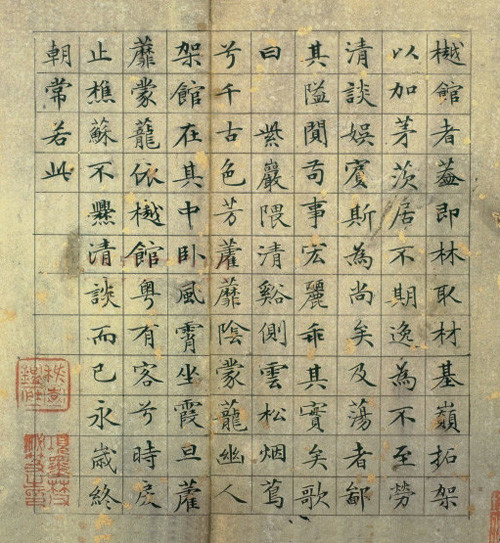 樾館者蓋即林取材基巔拓架
以加茅茨居不期逸為不至勞
清談娛賓斯為尚矣及蕩者鄙
其隘闃苟事宏麗乖其實矣歌
曰　紫巖隈清谿側雲松烟蔦
兮千古色芳藿蘼陰蒙蘢幽人
架館在其中臥風霄坐霞旦藿
蘼蒙龍依樾館粵有客兮時戾
止樵蘇不爨清談而已永歲終
朝常若此
項墨林父秘笈之印